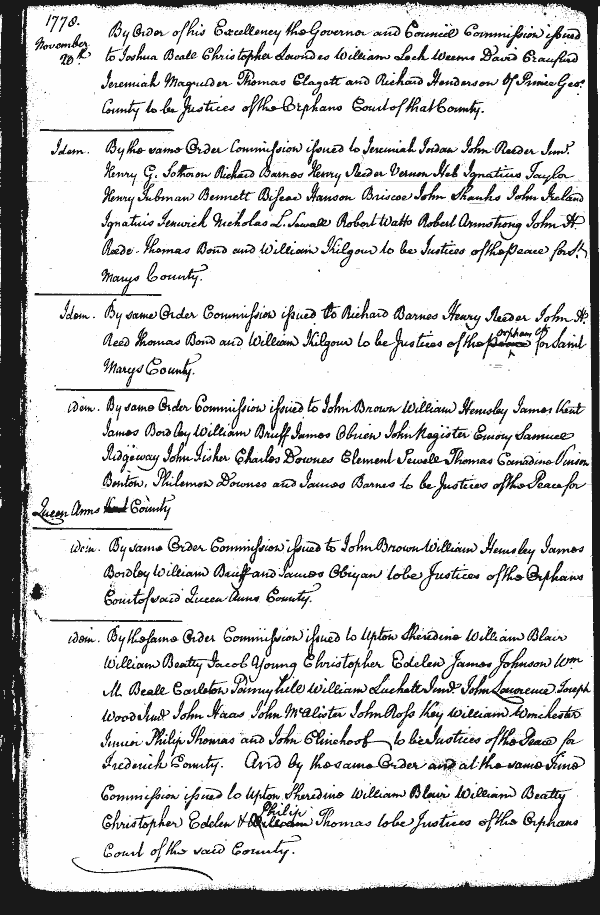 1778.
November
20th
By Order of his Excellency the Governor and Council Commission issued
to Joshua Beall Christopher Lowndes William Lock Weems David Craufurd
Jeremiah Magruder Thomas Clagett and Richard Henderson of Prince Geo.s
County to be Justices of the Orphans Court of that County.
Idem. By the same Order Commission issued to Jeremiah Jordan John Reeder Junr.
Henry G. Sothoron Richard Barnes Henry Reeder Vernon Heb Ignatius Taylor
Henry Tubman Bennett Biscoe Hanson Briscoe John Shanks John Ireland
Ignatuis Fenwick Nicholas L. Sewall Robert Watts Robert Armstrong John A.
Reede. Thomas Bond and William Kilgour to be Justices of the Peace for St.
Marys County.
Idem. By same Order Commission issued to Richard Barnes Henry Reeder John A.
Reed Thomas Bond and William Kilgour to be Justices of the orphans Ct. for Saint
Marys County.
idem. By same Order Commission issued to John Brown William Hemsley James Kent
James Bordley William Bruff James Obrien John Register Emory Samuel
Ridgeway John Fisher Charles Downes Clement Sewell Thomas Canadine Vinson
Benton, Philemon Downes and James Barnes to be Justices of the Peace for
Queen Anns County
idem. By same Order Commission issued to John Brown William Hemsley James
Bordley William Bruff and James Obryan to be Justices of the Orphans
Court of said Queen Anns County.
idem. By the same Order Commission issued to Upton Sheredine William Blair
William Beatty Jacob Young Christopher Edelen James Johnson Wm
M. Beall Carleton Tannyhill William Luckett Junr. John Lawrence Joseph
Wood Junr. John Haas John McAlister John Ross Key William Winchester
Junior Philip Thomas and John Clinehoof to be Justices of the Peace for
Frederick County. And by the same Order and at the same Time
Commission issued to Upton Sheredine William Blair William Beatty
Christopher Edelen & Philip Thomas to be Justices of the Orphans
Court of the said County.